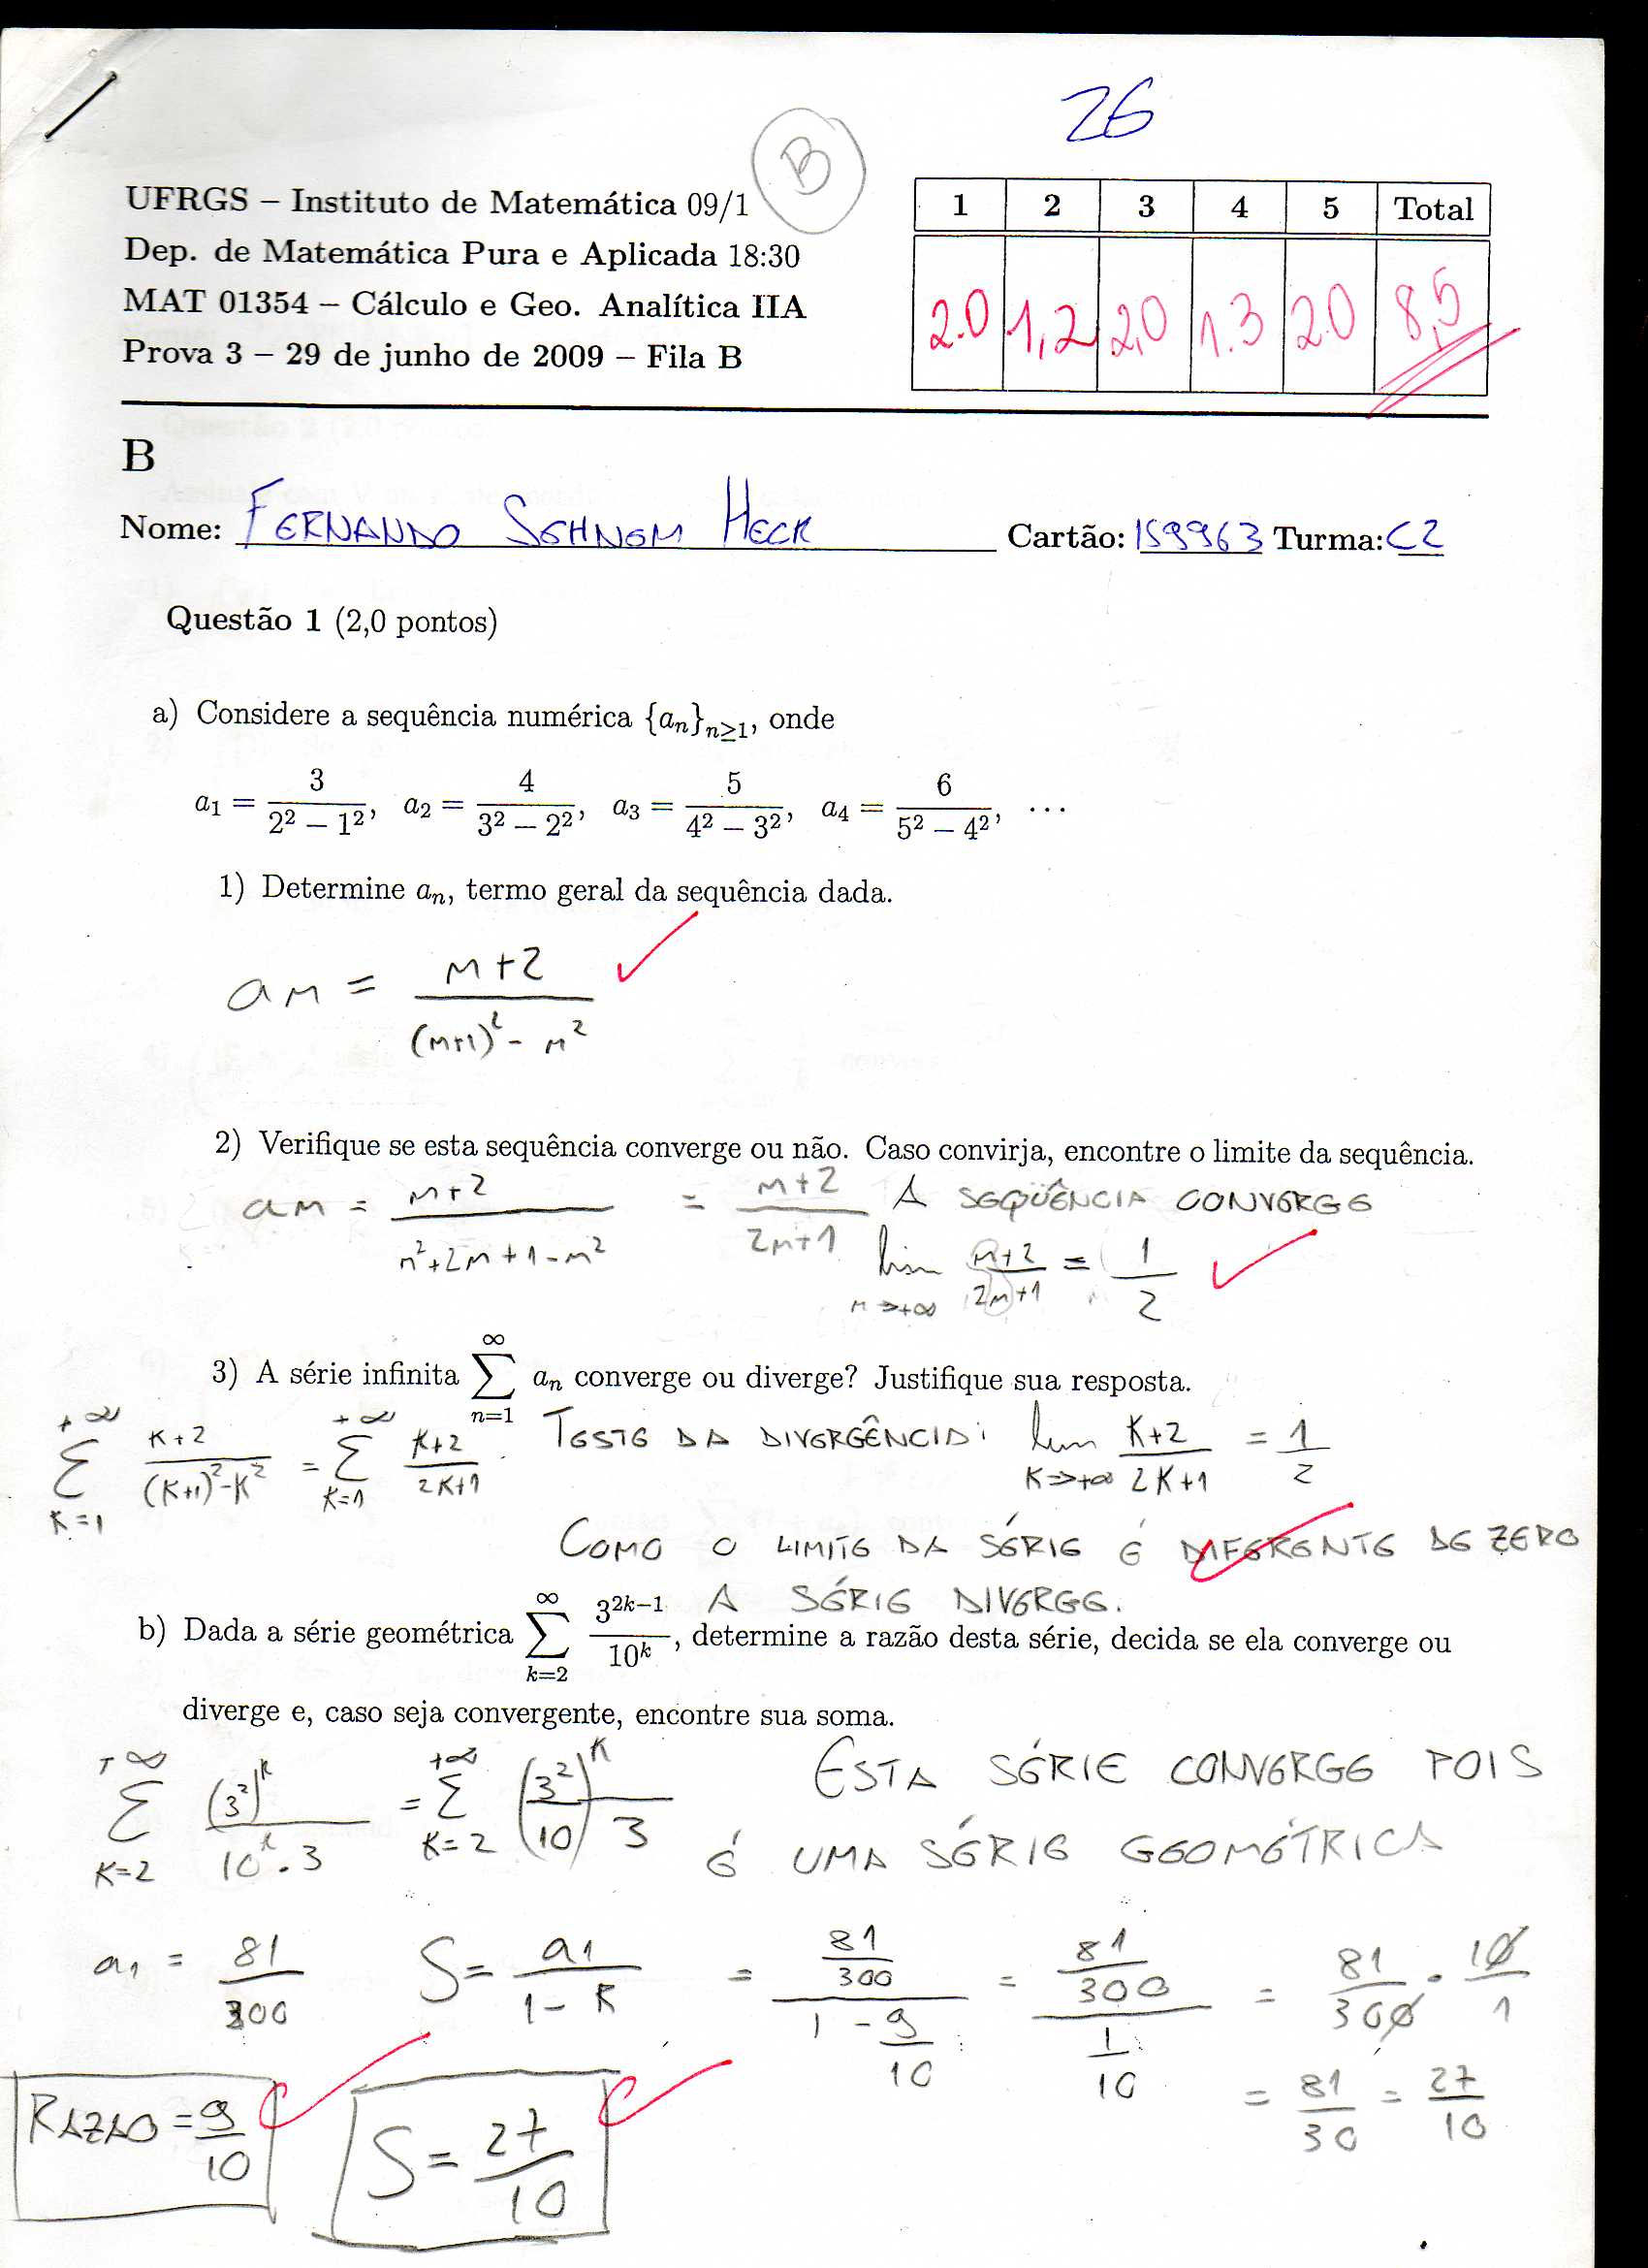 26
B
UFRGS – Instituto de Matemática 09/1
Dep. de Matemática Pura e Aplicada 18:30
MAT 01354 – Cálculo e Geo. Analítica IIA
Prova 3 – 29 de junho de 2009 – Fila B
1 2 3 4 5 Total
2.0 1,2 2,0 1.3 2.0 8,5
B
Nome: FERNANDO SEHNEM HECK Cartão: 159963 Turma: C2
Questão 1 (2,0 pontos)
a) Considere a sequência numérica {aₙ}ₙ≥₁, onde
a₁ = 3/(2² − 1²), a₂ = 4/(3² − 2²), a₃ = 5/(4² − 3²), a₄ = 6/(5² − 4²), ⋯
1) Determine aₙ, termo geral da sequência dada.
an = (n+2)/((n+1)² - n²)
2) Verifique se esta sequência converge ou não. Caso convirja, encontre o limite da sequência.
an = (n+2)/(n²+2n+1-n²) = (n+2)/(2n+1) A SEQÜÊNCIA CONVERGE
lim n→+∞ (n+2)/(2n+1) = 1/2
3) A série infinita ∑ n=1 ∞ aₙ converge ou diverge? Justifique sua resposta.
∑ K=1 +∞ (K+2)/((K+1)²-K²) = ∑ K=1 +∞ (K+2)/(2K+1). TESTE DA DIVERGÊNCIA: lim K→+∞ (K+2)/(2K+1) = 1/2
COMO O LIMITE DA SÉRIE É DIFERENTE DE ZERO
A SÉRIE DIVERGE.
b) Dada a série geométrica ∑ k=2 ∞ 3²ᵏ⁻¹/10ᵏ, determine a razão desta série, decida se ela converge ou
diverge e, caso seja convergente, encontre sua soma.
∑ K=2 +∞ (3²)ᴷ/(10ᴷ.3) = ∑ K=2 +∞ (3²/10)ᴷ/3 ESTA SÉRIE CONVERGE POIS
É UMA SÉRIE GEOMÉTRICA
a₁ = 81/300 S = a₁/(1-R) = (81/300)/(1-9/10) = (81/300)/(1/10) = 81/300 . 10/1
= 81/30 = 27/10
RAZAO = 9/10 S = 27/10